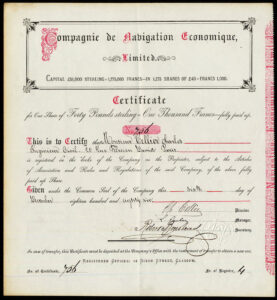 Compagnie de Navigation Economique,
Limited.
CAPITAL £50,000 STERLING=1,275,000 FRANCS=IN 1,275 SHARES OF £40=FRANCS 1,000.
Certificate
for One Share of Forty Pounds sterling=One Thousand Francs=fully paid up.
No. 736
This is to Certify that Monsieur Collier Charles
is registered in the books of the Company as the Proprietor, subject to the Articles
of Association and Rules and Regulations of the said Company, of the above fully
paid up Share.
Given under the Common Seal of the Company this sixth day of
eighteen hundred and
Director
Manager
Secretary
In case of transfer, the Certificate must be deposited at the Company's Office with the instrument of transfer to obtain a new one.
REGISTERED OFFICES: 51 DIXON STREET, GLASGOW.
No. of Certificate, 736
No. of Register, 4